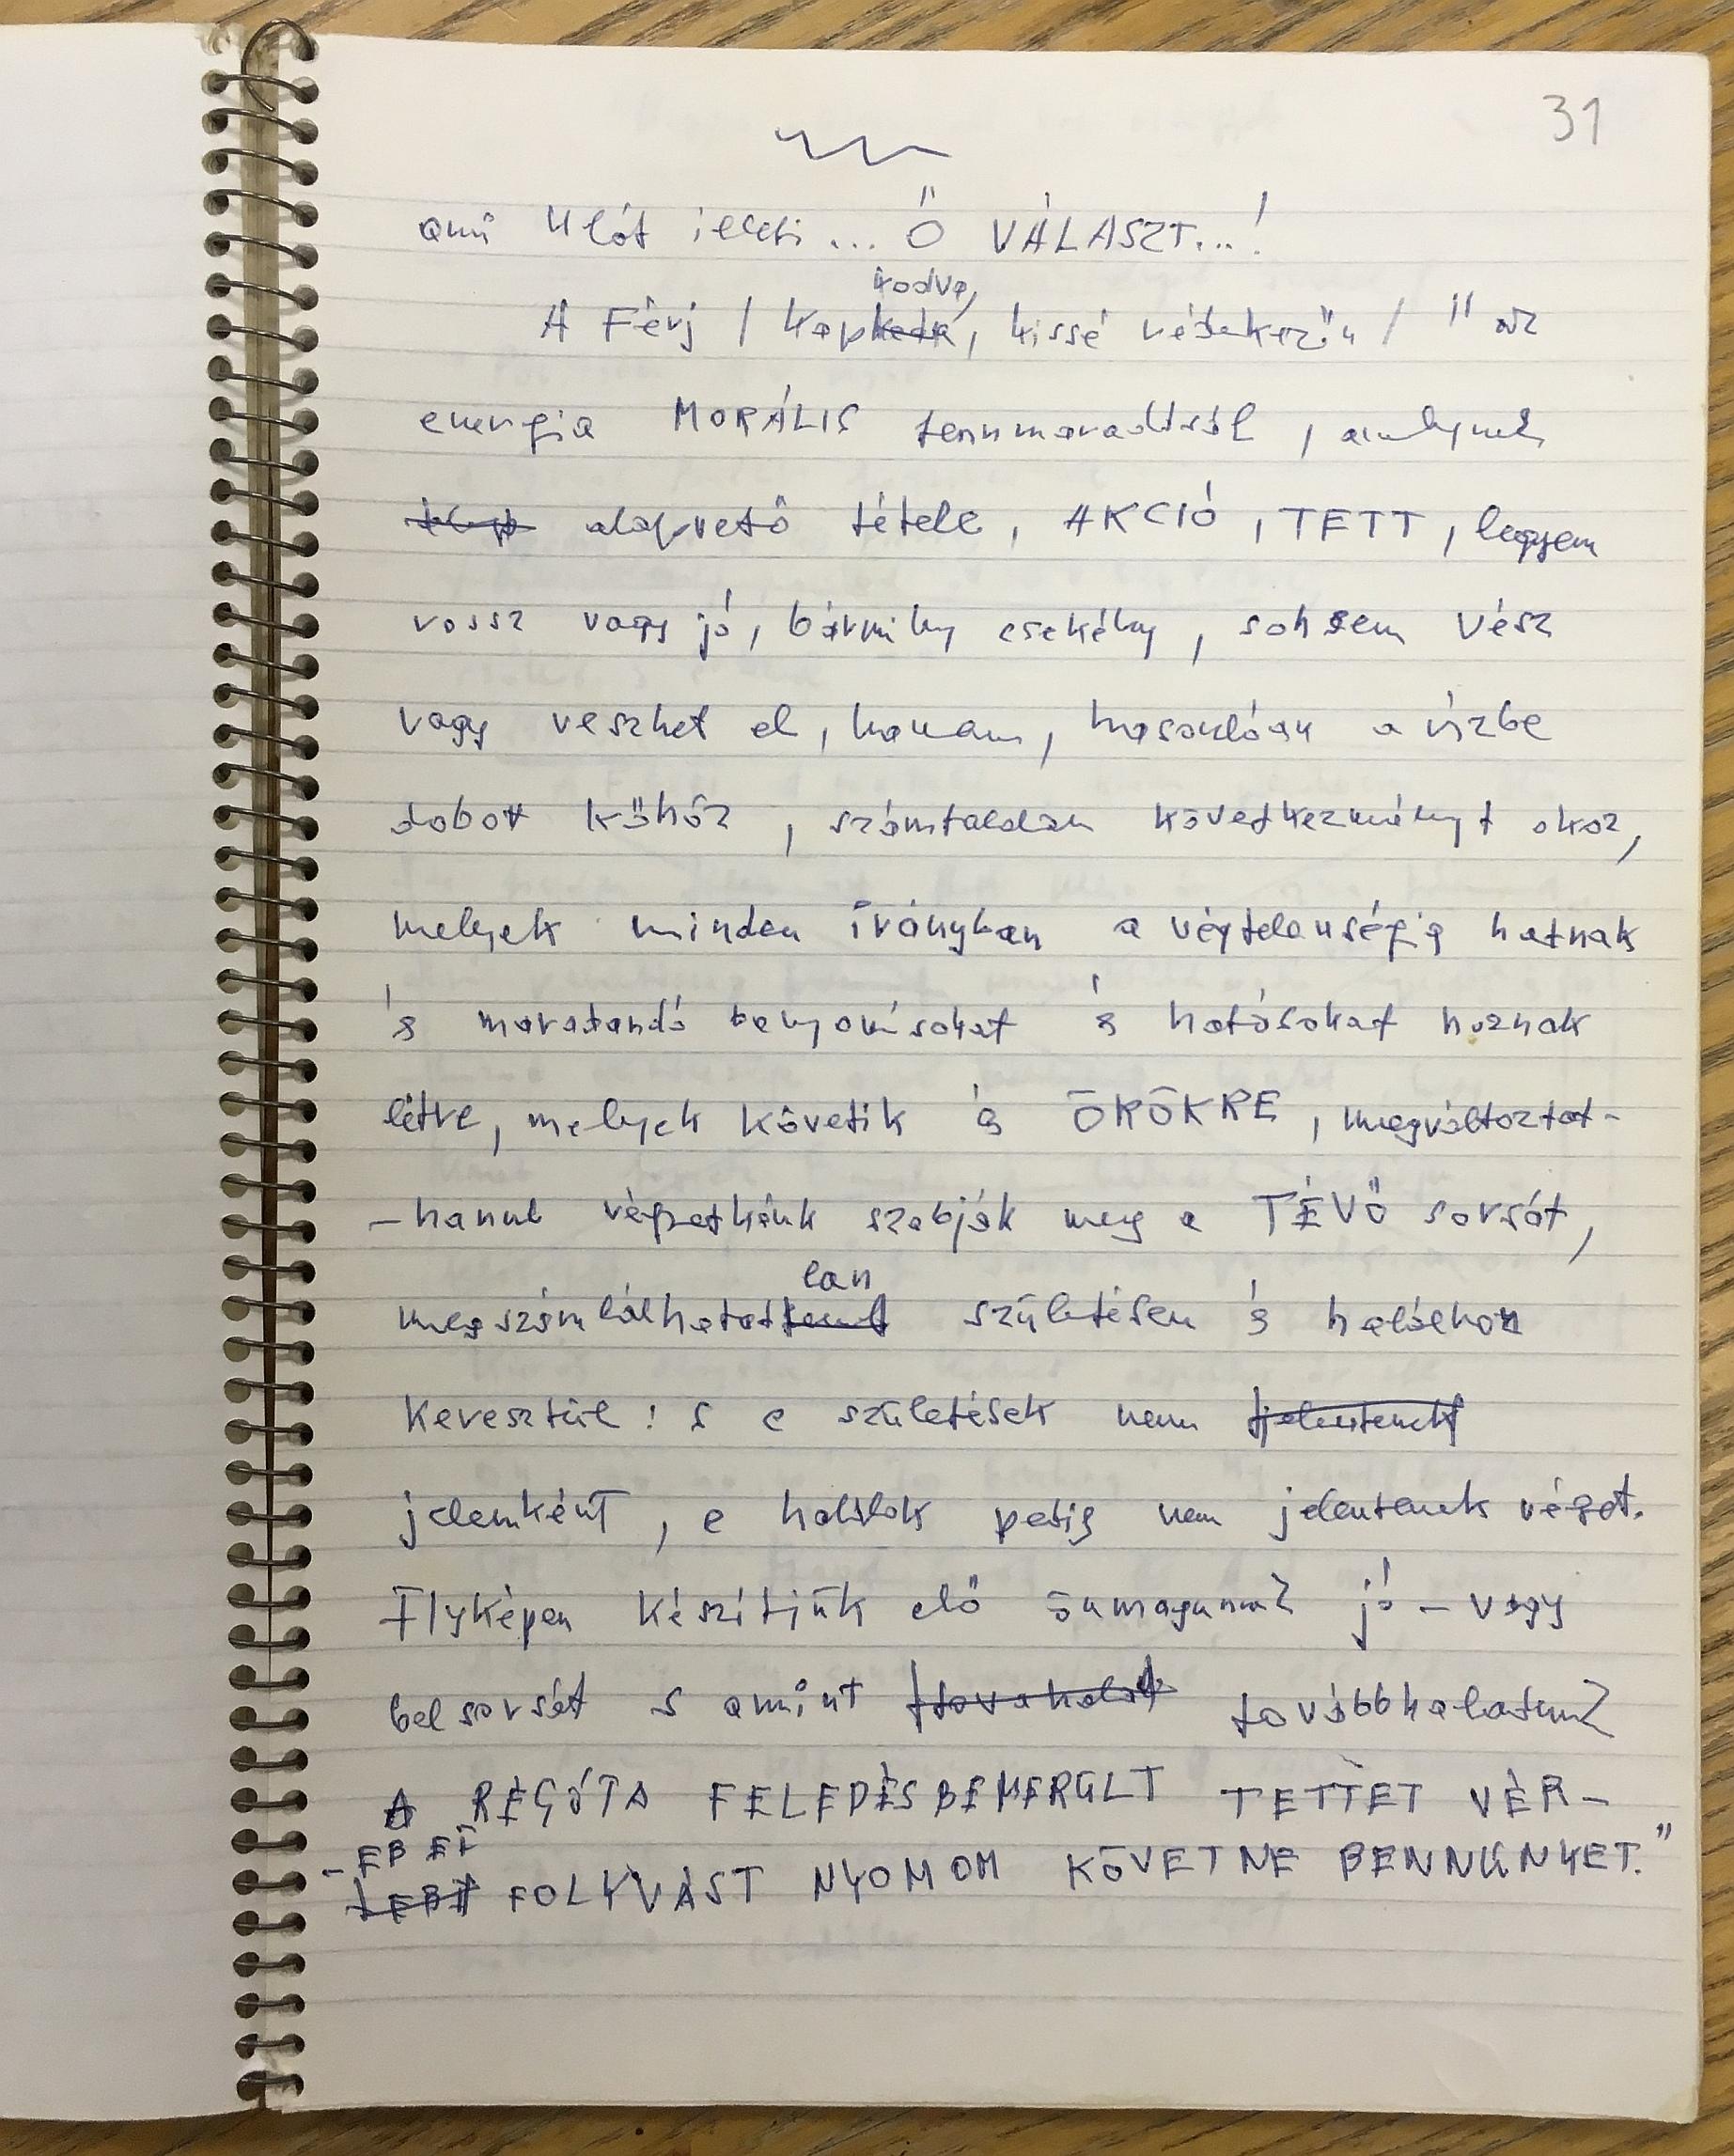 31
ami Ulót illeti... Ő VÁLASZT...!
kodva,
A Férj / kap, kissé védekezőn / "az
energia MORÁLIS fennmaradásról, amelynek
alapvető tétele, AKCIÓ, TETT, legyen
rossz vagy jó, bármily csekély, sohsem vész
vagy veszhet el, hanem, hasonlóan a vízbe
dobott kőhöz, számtalan következményt okoz,
melyek minden irányban a végtelenségig hatnak
és maradandó benyomásokat és hatásokat hoznak
létre, melyek követik és ÖRÖKRE, megváltoztat-
-hanul végzetként szabják meg a TÉVŐ sorsát,
lan
megszámlálhatat születésen és halálon
keresztül: s e születések nem
jelenként, e halálok pedig nem jelentenek véget.
Ilyképen készítjük elő önmagunk jó - vagy
balsorsát s amint továbbhaladunk
A RÉGÓTA FELEDÉSBEMERÜLT TETTET VÉR-
-EBEI
FOLYVÁST NYOMON KÖVETNE BENNÜNKET."